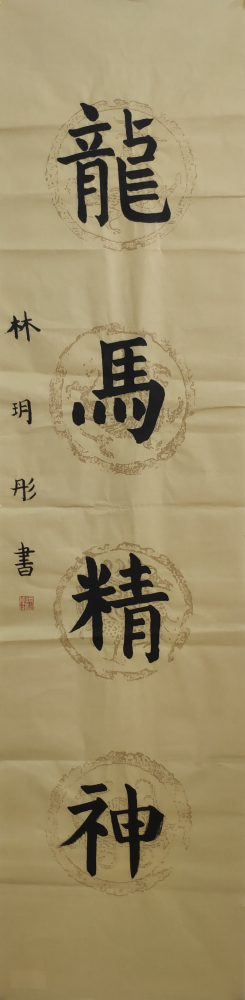 龍馬精神
林玥彤書